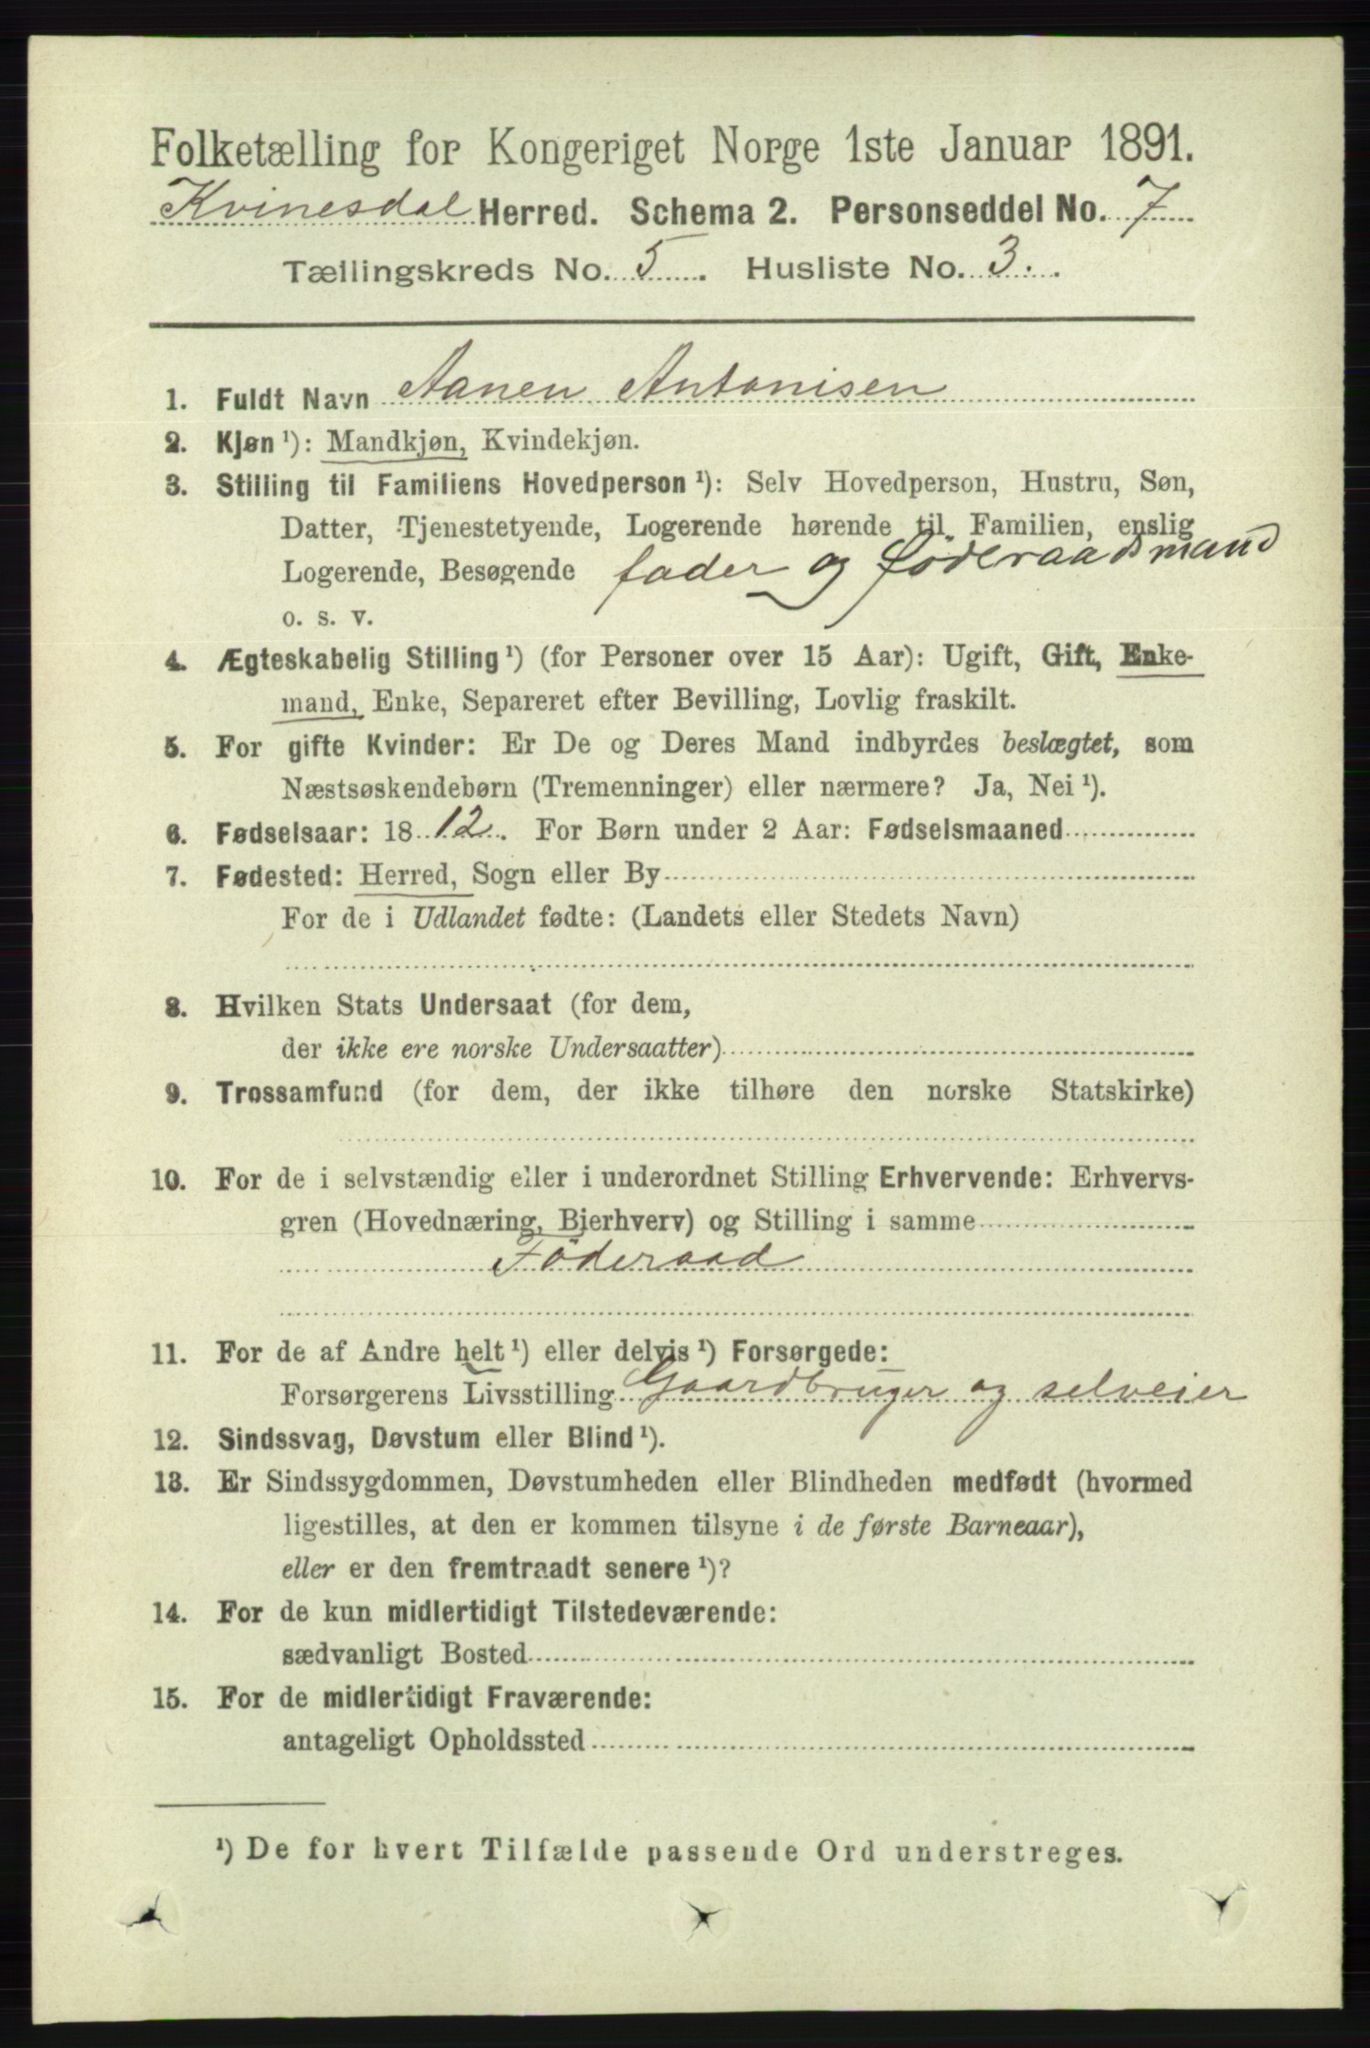 Folketælling for Kongeriget Norge 1ste Januar 1891.
Kvinesdal Herred. Schema 2. Personseddel No. 7
Tællingskreds No. 5. Husliste No. 3.
1. Fuldt Navn Aanen Antonisen
2. Kjøn ¹): Mandkjøn, Kvindekjøn.
3. Stilling til Familiens Hovedperson ¹): Selv Hovedperson, Hustru, Søn,
Datter, Tjenestetyende, Logerende hørende til Familien, enslig
Logerende, Besøgende fader og föderaadsmand
o. s. v.
4. Ægteskabelig Stilling ¹) (for Personer over 15 Aar): Ugift, Gift, Enke-
mand, Enke, Separeret efter Bevilling, Lovlig fraskilt.
5. For gifte Kvinder: Er De og Deres Mand indbyrdes beslægtet, som
Næstsøskendebørn (Tremenninger) eller nærmere? Ja, Nei ¹).
6. Fødselsaar: 18 12. For Børn under 2 Aar: Fødselsmaaned
7. Fødested: Herred, Sogn eller By
For de i Udlandet fødte: (Landets eller Stedets Navn)
8. Hvilken Stats Undersaat (for dem,
der ikke ere norske Undersaatter)
9. Trossamfund (for dem, der ikke tilhøre den norske Statskirke)
10. For de i selvstændig eller i underordnet Stilling Erhvervende: Erhvervs-
gren (Hovednæring, Bierhverv) og Stilling i samme
Föderaad
11. For de af Andre helt ¹) eller delvis ¹) Forsørgede:
Forsørgerens Livsstilling Gaardbruger og selveier
12. Sindssvag, Døvstum eller Blind ¹).
13. Er Sindssygdommen, Døvstumheden eller Blindheden medfødt (hvormed
ligestilles, at den er kommen tilsyne i de første Barneaar),
eller er den fremtraadt senere ¹)?
14. For de kun midlertidigt Tilstedeværende:
sædvanligt Bosted
15. For de midlertidigt Fraværende:
antageligt Opholdssted
¹) De for hvert Tilfælde passende Ord understreges.